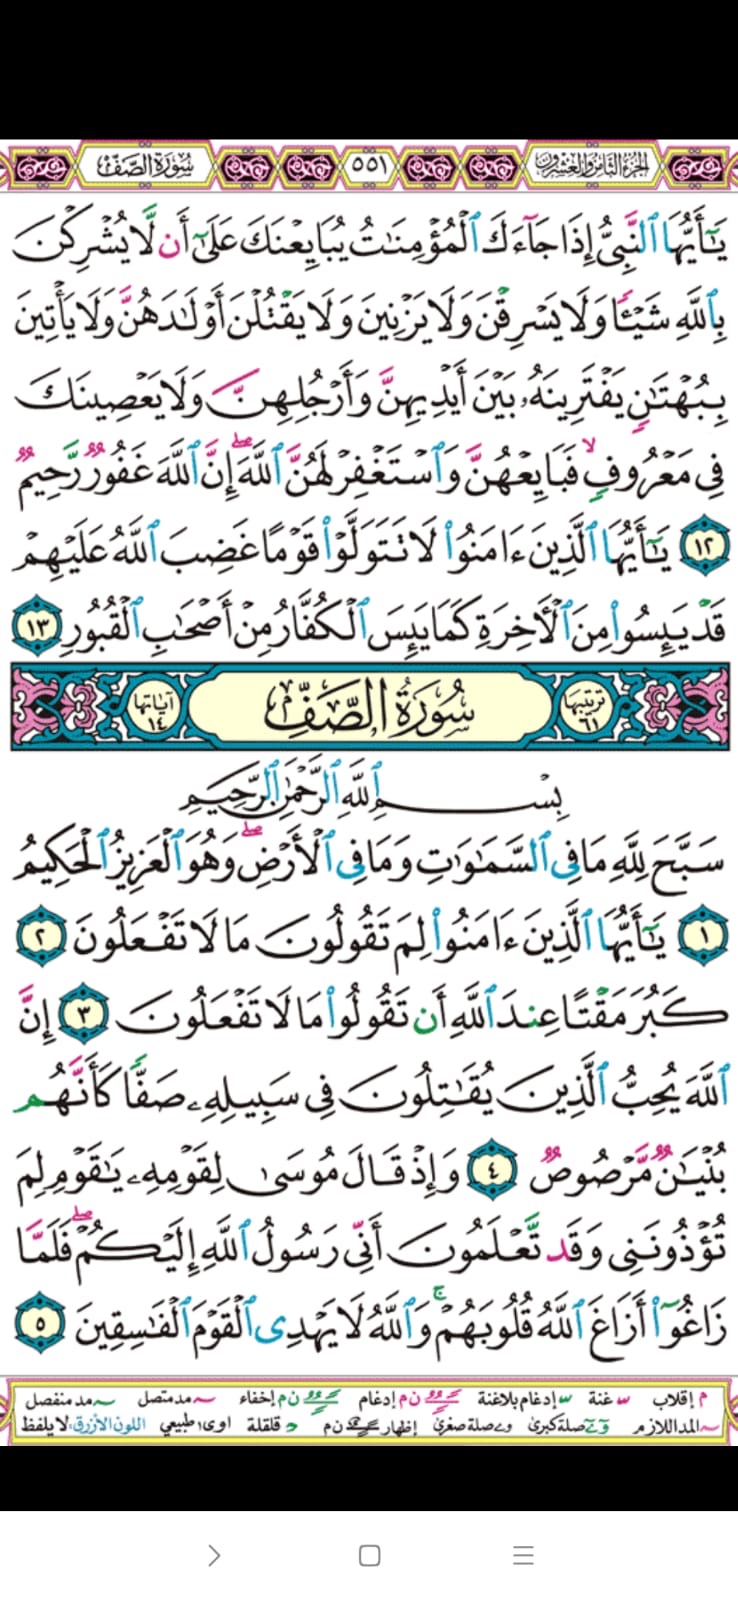 الجزء الثامن والعشرون ٥٥١ سورة الصف
يَـٰٓأَيُّهَا ٱلنَّبِيُّ إِذَا جَآءَكَ ٱلْمُؤْمِنَـٰتُ يُبَايِعْنَكَ عَلَىٰٓ أَن لَّا يُشْرِكْنَ
بِٱللَّهِ شَيْـًٔا وَلَا يَسْرِقْنَ وَلَا يَزْنِينَ وَلَا يَقْتُلْنَ أَوْلَـٰدَهُنَّ وَلَا يَأْتِينَ
بِبُهْتَـٰنٍ يَفْتَرِينَهُۥ بَيْنَ أَيْدِيهِنَّ وَأَرْجُلِهِنَّ وَلَا يَعْصِينَكَ
فِى مَعْرُوفٍ ۙ فَبَايِعْهُنَّ وَٱسْتَغْفِرْ لَهُنَّ ٱللَّهَ ۖ إِنَّ ٱللَّهَ غَفُورٌ رَّحِيمٌ
١٢ يَـٰٓأَيُّهَا ٱلَّذِينَ ءَامَنُوا۟ لَا تَتَوَلَّوْا۟ قَوْمًا غَضِبَ ٱللَّهُ عَلَيْهِمْ
قَدْ يَئِسُوا۟ مِنَ ٱلْـَٔاخِرَةِ كَمَا يَئِسَ ٱلْكُفَّارُ مِنْ أَصْحَـٰبِ ٱلْقُبُورِ ١٣
ترتيبها ٦١ سُورَةُ الصَّفِّ آياتها ١٤
بِسْمِ ٱللَّهِ ٱلرَّحْمَـٰنِ ٱلرَّحِيمِ
سَبَّحَ لِلَّهِ مَا فِى ٱلسَّمَـٰوَٰتِ وَمَا فِى ٱلْأَرْضِ ۖ وَهُوَ ٱلْعَزِيزُ ٱلْحَكِيمُ
١ يَـٰٓأَيُّهَا ٱلَّذِينَ ءَامَنُوا۟ لِمَ تَقُولُونَ مَا لَا تَفْعَلُونَ ٢
كَبُرَ مَقْتًا عِندَ ٱللَّهِ أَن تَقُولُوا۟ مَا لَا تَفْعَلُونَ ٣ إِنَّ
ٱللَّهَ يُحِبُّ ٱلَّذِينَ يُقَـٰتِلُونَ فِى سَبِيلِهِۦ صَفًّا كَأَنَّهُم
بُنْيَـٰنٌ مَّرْصُوصٌ ٤ وَإِذْ قَالَ مُوسَىٰ لِقَوْمِهِۦ يَـٰقَوْمِ لِمَ
تُؤْذُونَنِى وَقَد تَّعْلَمُونَ أَنِّى رَسُولُ ٱللَّهِ إِلَيْكُمْ ۖ فَلَمَّا
زَاغُوٓا۟ أَزَاغَ ٱللَّهُ قُلُوبَهُمْ ۚ وَٱللَّهُ لَا يَهْدِى ٱلْقَوْمَ ٱلْفَـٰسِقِينَ ٥
م إقلاب غنة إدغام بلاغنة ن م إدغام ن م إخفاء مد متصل مد منفصل
المد اللازم صلة كبرى صلة صغرى إظهار ن م قلقلة اوى طبيعي اللون الأزرق: لا يلفظ